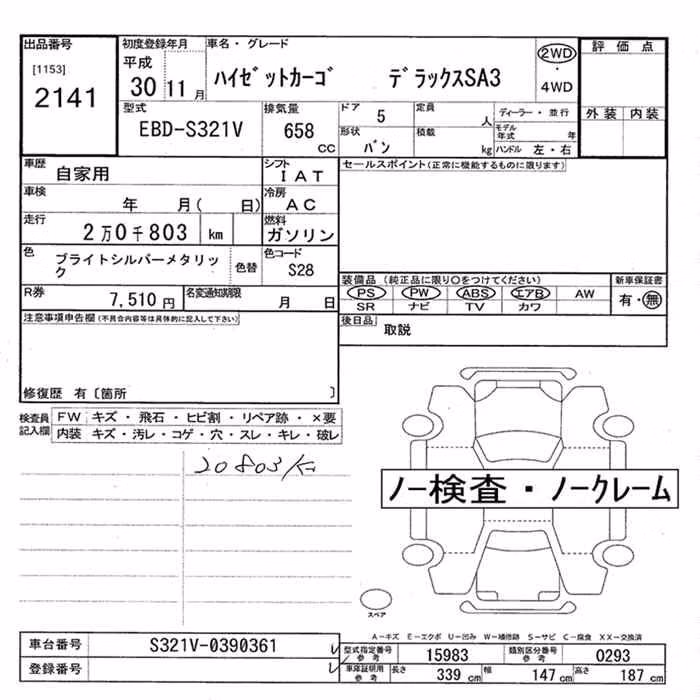 出品番号
[1153]
2141
初度登録年月
平成
30 11 月
車名・グレード
ハイゼットカーゴ デラックスSA3
2WD
・
4WD
評価点
外装 内装
型式
EBD-S321V
排気量
658
CC
ドア 5
形状 バン
定員 人
積載 kg
ディーラー・並行
モデル年式 年
ハンドル 左・右
車歴 自家用
シフト IAT
車検 年 月( 日)
冷房 AC
走行 2万0千803 km
燃料 ガソリン
色 ブライトシルバーメタリック
色替
色コード S28
R券 7,510 円
名変通知期限 月 日
セールスポイント(正常に機能するものに限ります)
装備品 (純正品に限り○をつけてください)
PS PW ABS エアB AW
SR ナビ TV カワ
新車保証書
有・無
後日品 取説
注意事項申告欄(不具合内容等は具体的に記入して下さい)
修復歴 有〔箇所 〕
検査員記入欄
FW キズ・飛石・ヒビ割・リペア跡・×要
内装 キズ・汚レ・コゲ・穴・スレ・キレ・破レ
20803K
ノー検査・ノークレーム
スペア
A-キズ E-エクボ U-凹み W-補修跡 S-サビ C-腐食 XX-交換済
車台番号 S321V-0390361
登録番号
型式指定番号 参考 15983
類別区分番号 参考 0293
車庫証明用 参考 長さ 339 cm 幅 147 cm 高さ 187 cm